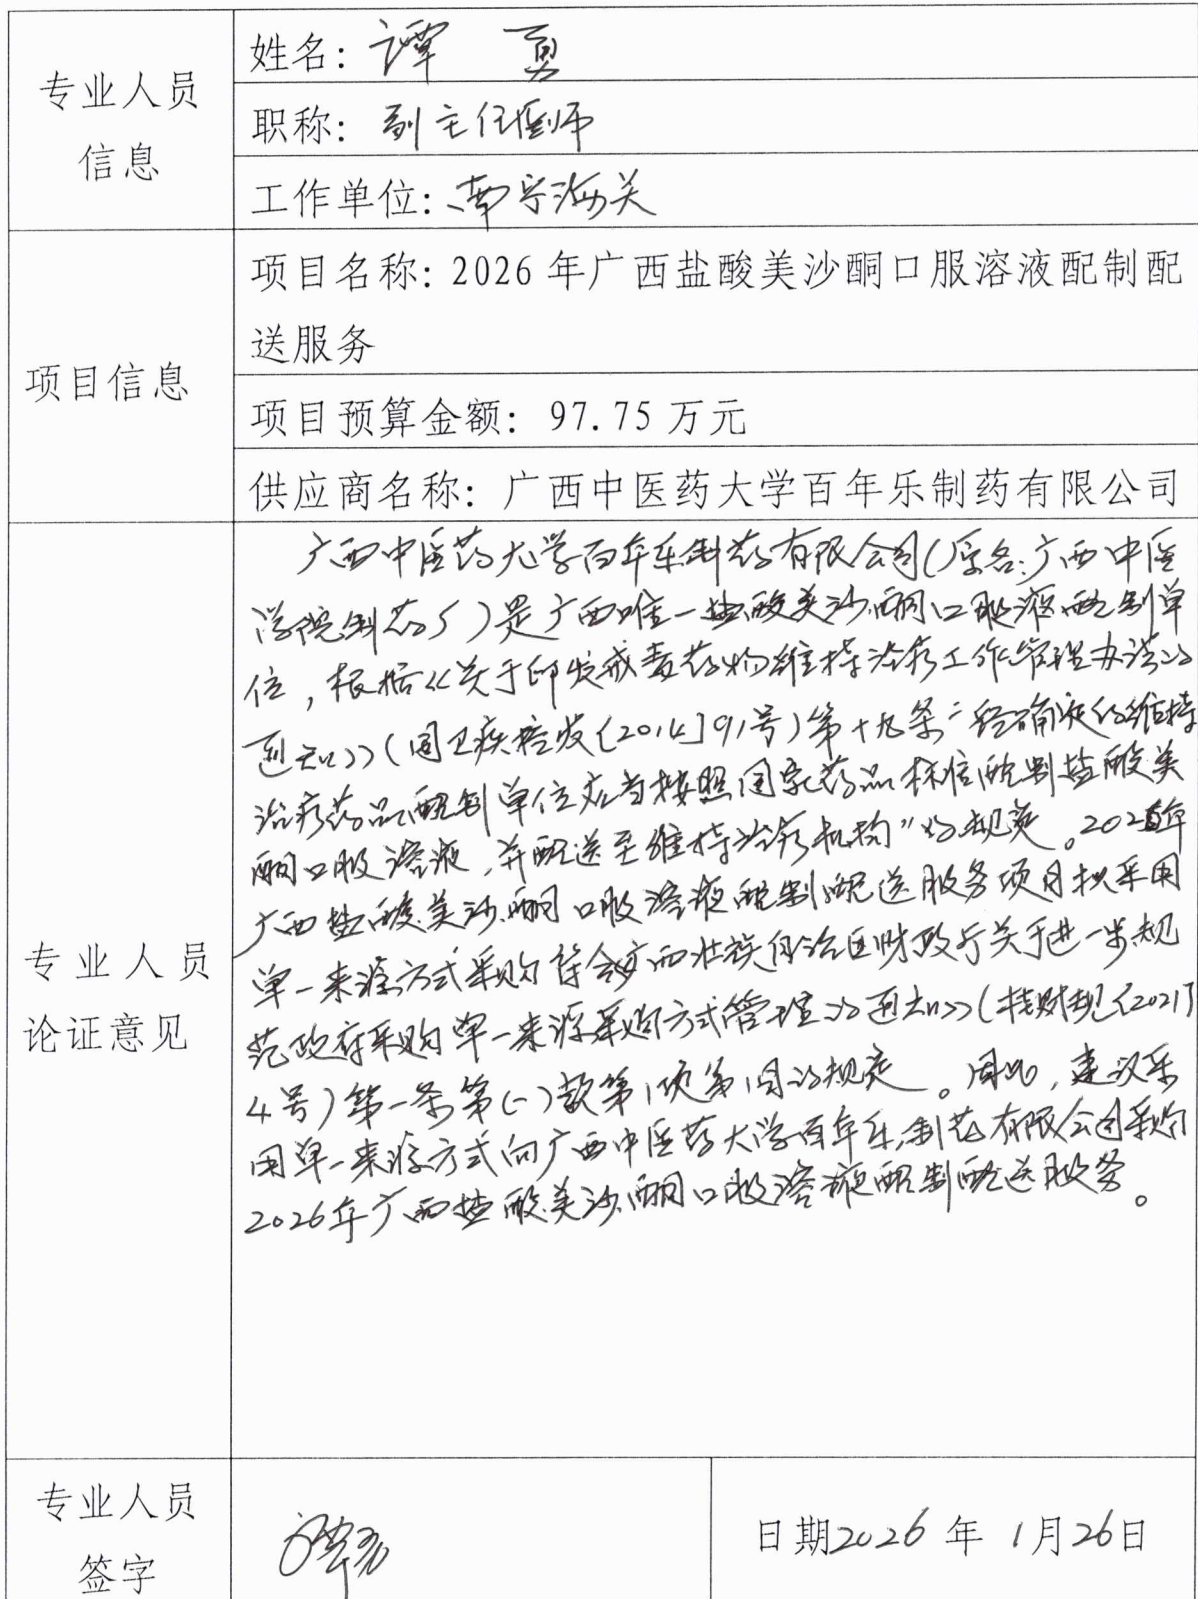 专业人员
信息
姓名：谭 勇
职称：副主任医师
工作单位：南宁海关
项目信息
项目名称：2026年广西盐酸美沙酮口服溶液配制配
送服务
项目预算金额：97.75万元
供应商名称：广西中医药大学百年乐制药有限公司
专业人员
论证意见
广西中医药大学百年乐制药有限公司（原名：广西中医
学院制药厂）是广西唯一盐酸美沙酮口服液配制单
位，根据《关于印发戒毒药物维持治疗工作管理办法的
通知》（国卫疾控发〔2014〕91号）第十九条“经确定的维持
治疗药品配制单位应当按照国家药品标准配制盐酸美
酮口服溶液，并配送至维持治疗机构”的规定。2026年
广西盐酸美沙酮口服溶液配制配送服务项目拟采用
单一来源方式采购符合广西壮族自治区财政厅关于进一步规
范政府采购单一来源采购方式管理的通知》（桂财规〔2021〕
4号）第一条第（一）款第1项第1目的规定。因此，建议采
用单一来源方式向广西中医药大学百年乐制药有限公司采购
2026年广西盐酸美沙酮口服溶液配制配送服务。
专业人员
签字
谭勇
日期2026年 1月26日